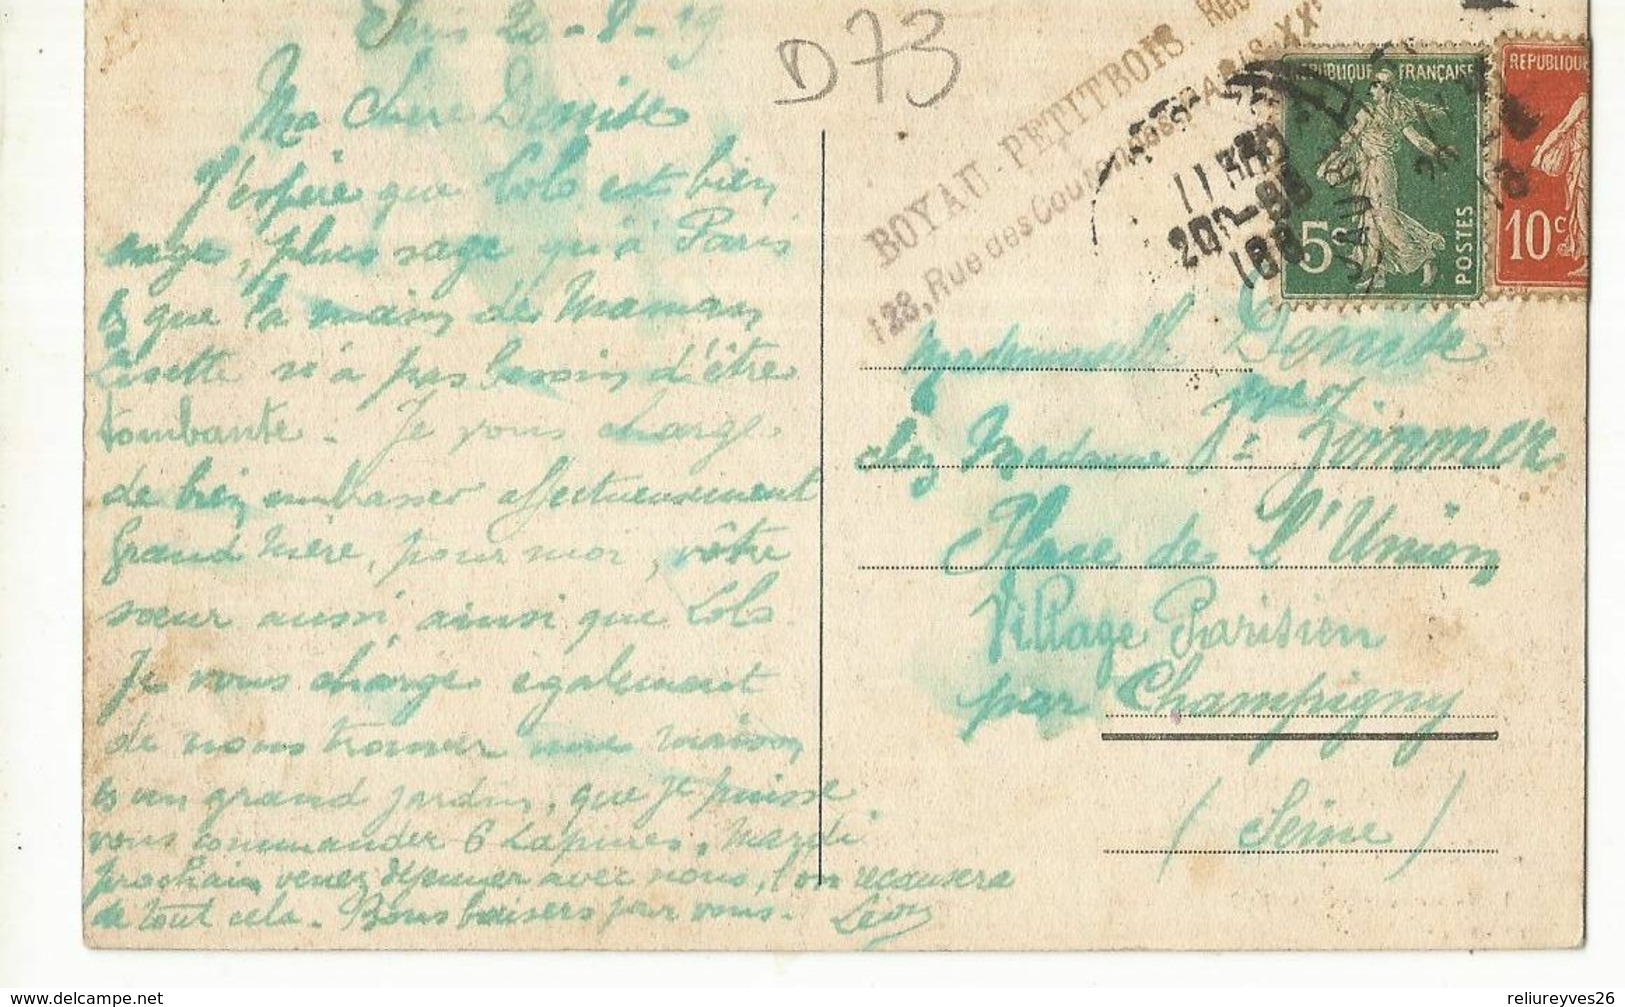 Paris 20-8-19
D73
Ma chère Denise
J'espère que Lolo est bien
sage, plus sage qu'à Paris
& que la main de Maman
Lisette n'a pas besoin d'être
tombante. Je vous charge
de bien embrasser affectueusement
Grand Mère, pour moi, vôtre
sœur aussi, ainsi que Lolo.
Je vous charge également
de nous trouver une maison
& un grand jardin, que je puisse
vous commander 6 Lapines. Mardi
prochain venez déjeuner avec nous, l'on recausera
de tout cela. Bons baisers pour vous. Léon
BOYAU-PETITBOIS.
128, Rue des Couronnes PARIS-XXe
REPUBLIQUE FRANÇAISE
5c
POSTES
REPUBLIQUE
10c
Mademoiselle Denise
chez Madame Zimmer
Place de l'Union
Village Parisien
par Champigny
(Seine)
reliureyves26